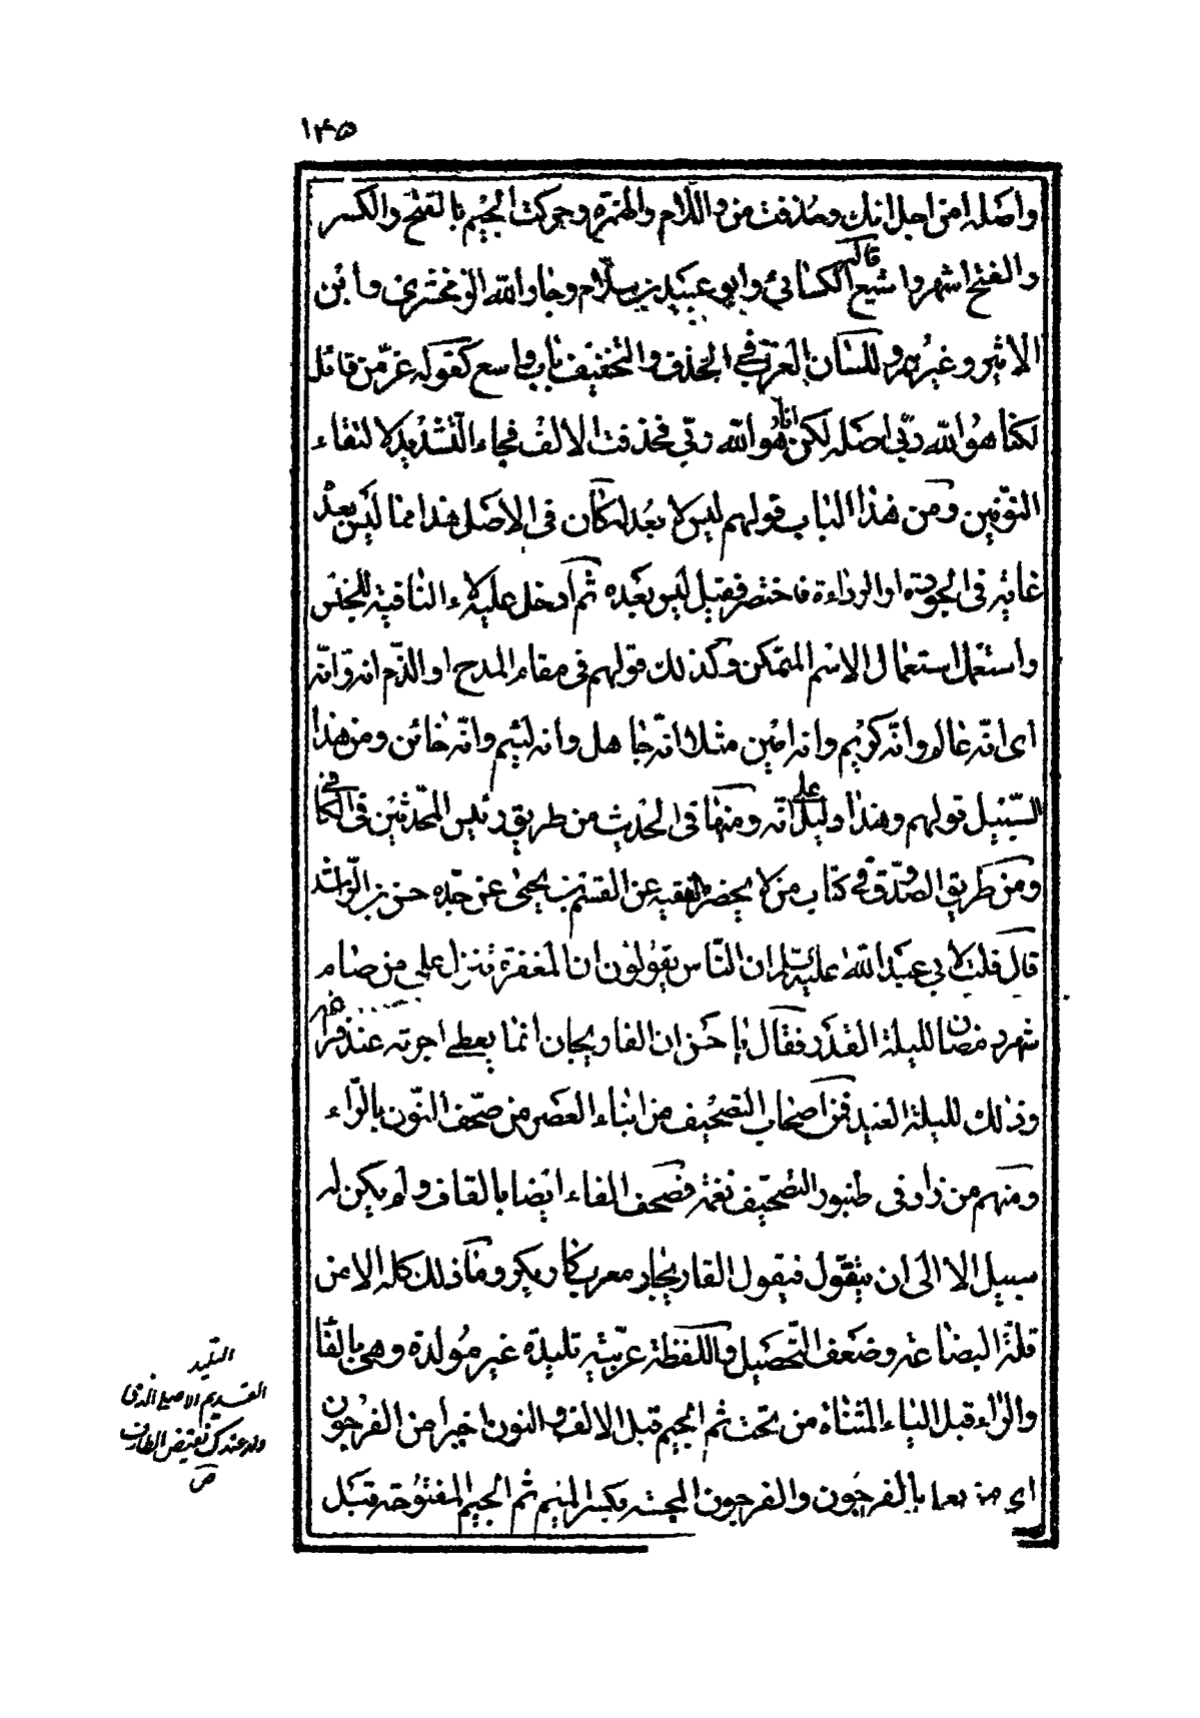 ١٣٥
واصله من اجل انك وحذفت من واللام والهمزة وحركت الجيم بالفتح والكسر
والفتح اشهر واشيع قاله الكسائي وابو عبيد بن سلام وجار الله الزمخشري وابن
الاثير وغيرهم وللسان العرب في الحذف والتخفيف باب واسع كقوله عز من قائل
لكنا هو الله ربي اصله لكن انا هو الله ربي فحذفت الالف فجاء التشديد لالتقاء
النونين ومن هذا الباب قولهم ليس لا بعد له كان في الاصل هذا مما ليس بعد
غايه في الجودة او الرداءة فاختصر فقيل ليس بعده ثم ادخل عليه لاء النافية للجنس
واستعمل استعمال الاسم المتمكن وكذلك قولهم في مقام المدح او الذم انه وانه
اى انه عالم وانه كريم وانه امين مثلا انه جاهل وانه لئيم وانه خائن ومن هذا
السبيل قولهم وهذا دليل على انه ومنها في الحديث من طريق رئيس المحدثين في الكافي
ومن طريق الصدوق في كتاب من لا يحضره الفقيه عن القسم بن يحيى عن جده حسن بن الراشد
قال قلت لابي عبد الله عليه السلم ان الناس يقولون ان المغفرة تنزل على من صام
شهر رمضان لليلة القدر فقال يا حسن ان الفاريجان انما يعطى اجرته عند فراغه
وذلك لليلة العيد فمن اصحاب التصحيف من ابناء العصر من صحف النون بالراء
ومنهم من زاد في طنبور التصحيف نغمة فصحف الفاء ايضا بالقاف ولم يكن له
سبيل الا الى ان يتقول فيقول القاريجار معرب كاريكر وما ذلك كله الا من
قلة البضاعة وضعف التحصيل واللفظة عربية تليدة غير مولدة وهى بالفا
والراء قبل الياء المثناة من تحت ثم الجيم قبل الالف والنون اخيرا من الفرجون
اى بالفرجون والفرجون المجسه بكسر الميم ثم الجيم المفتوحة قبل
التليد
القديم الاصلي الذي
ولد عندك نقيض الطارف
ص